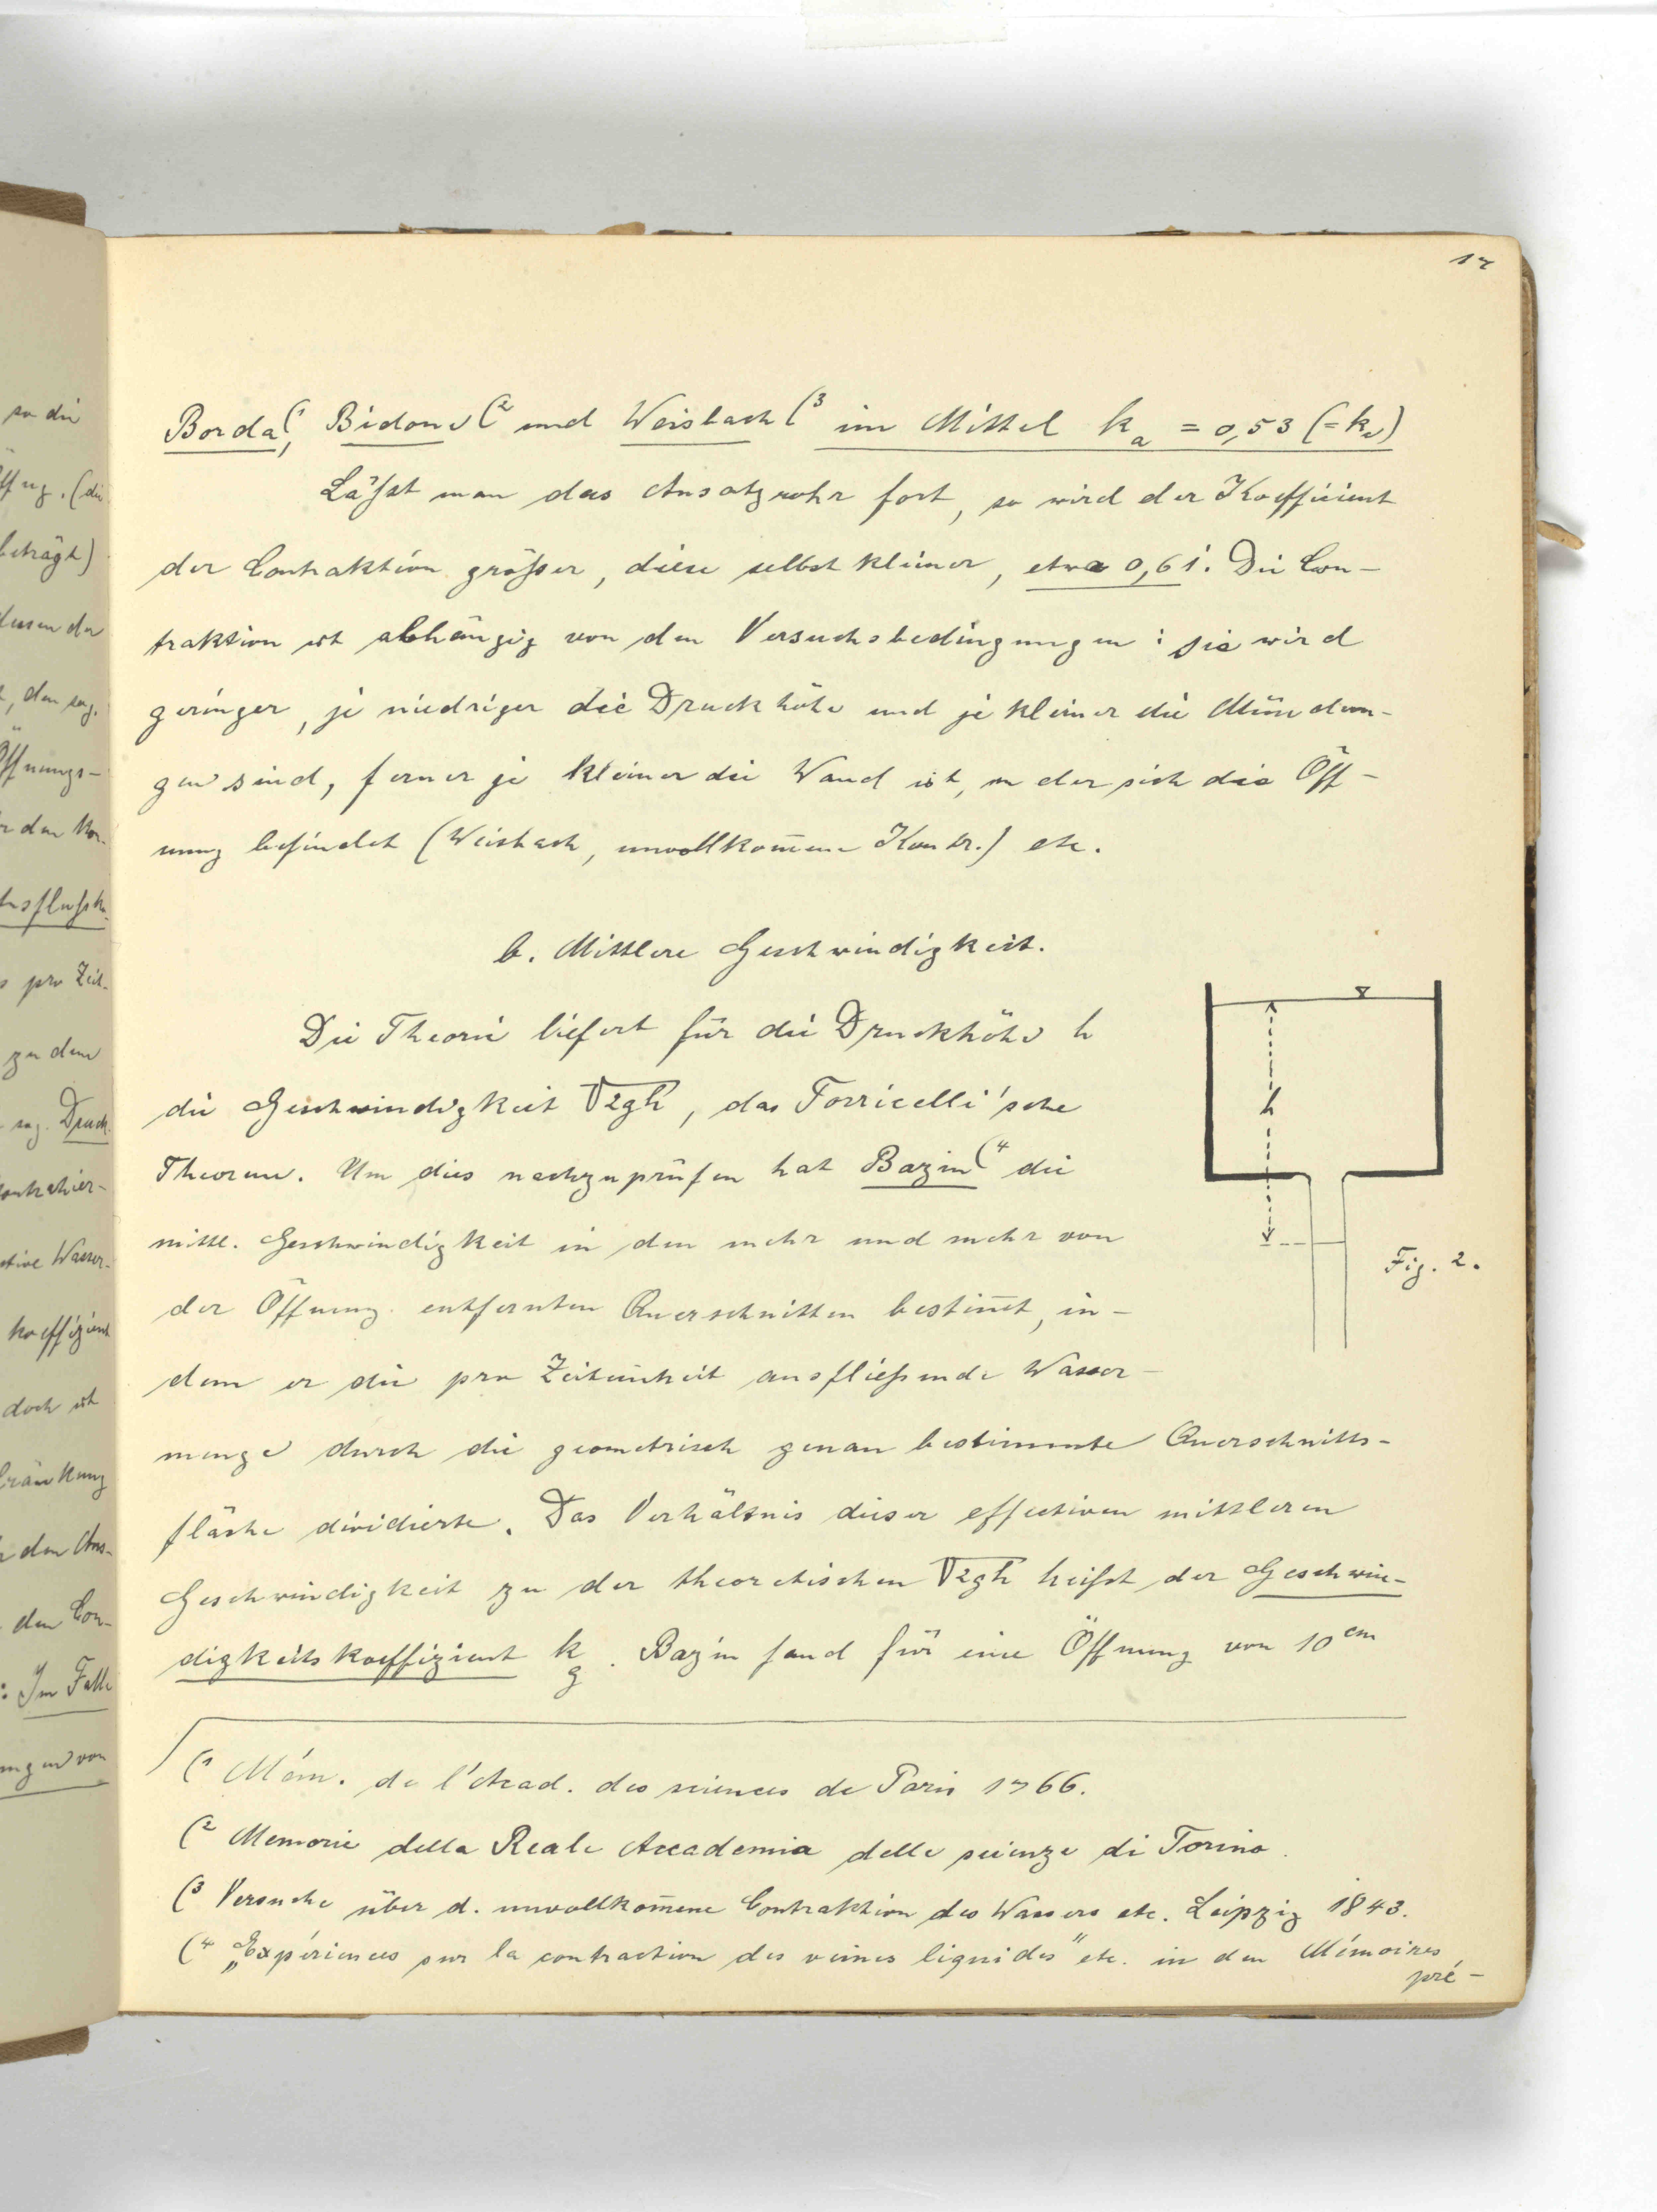 17
Borda(1, Bidone(2 und Weisbach(3 im Mittel ka = 0,53 (=kc)
Läßt man das Ansatzrohr fort, so wird der Koefficient
der Contraktion größer, diese selbst kleiner, etwa 0,61. Die Con-
traktion ist abhängig von den Versuchsbedingungen: sie wird
geringer, je niedriger die Druckhöhe und je kleiner die Mündun-
gen sind, ferner je kleiner die Wand ist, in der sich die Öff-
nung befindet (Weisbach, unvollkom̄ene Kontr.) etc.
b. Mittlere Geschwindigkeit.
Die Theorie liefert für die Druckhöhe h
die Geschwindigkeit √2gh, das Torricelli'sche
Theorem. Um dies nachzuprüfen hat Bazin(4 die
mittl. Geschwindigkeit in den mehr und mehr von
der Öffnung entfernten Querschnitten bestim̄t, in-
dem er die pro Zeiteinheit ausfließende Wasser-
menge durch die geometrisch genau bestimmte Querschnitts-
fläche dividierte. Das Verhältnis dieser effectiven mittleren
Geschwindigkeit zu der theoretischen √2gh heißt der Geschwin-
digkeitskoeffizient kg. Bazin fand für eine Öffnung von 10cm
h
Fig. 2.
(1 Mém. de l'Acad. des sciences de Paris 1766.
(2 Memorie della Reale Accademia delle scienze di Torino.
(3 Versuche über d. unvollkom̄ene Contraktion des Wassers etc. Leipzig 1843.
(4 „Expériences sur la contraction des veines liquides" etc. in den Mémoires
pré-
so die
beträgt)
dessen der
, den sog.
Öffnungs-
pro Zeit-
zu dem
sog. Druck-
contrahier-
Wasser-
koeffizient
doch ist
den Con-
: Im Falle